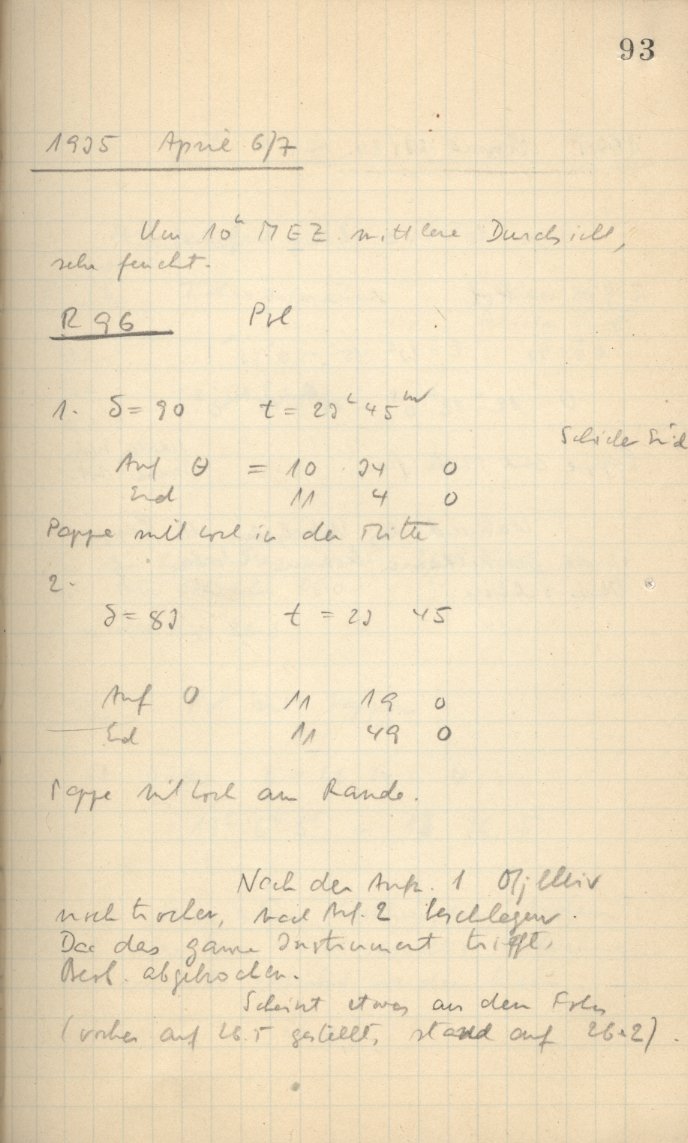 93
1935 April 6/7
Um 10h MEZ mittlere Durchsicht,
sehr feucht.
R 96 Pol
1. δ = 90 t = 23h 45m
Süd
Anf θ = 10 34 0
End 11 4 0
Pappe mit Loch in der Mitte
2.
δ = 83 t = 23 45
Anf θ 11 19 0
End 11 49 0
Pappe mit Loch am Rande.
Nach der Aufn. 1 Objektiv
noch trocken, nach Auf. 2 beschlagen.
Da das ganze Instrument trieft,
Beob. abgebrochen.
Scheint etwas an dem
(vorher auf 26.5 gestellt, stand auf 26.2).